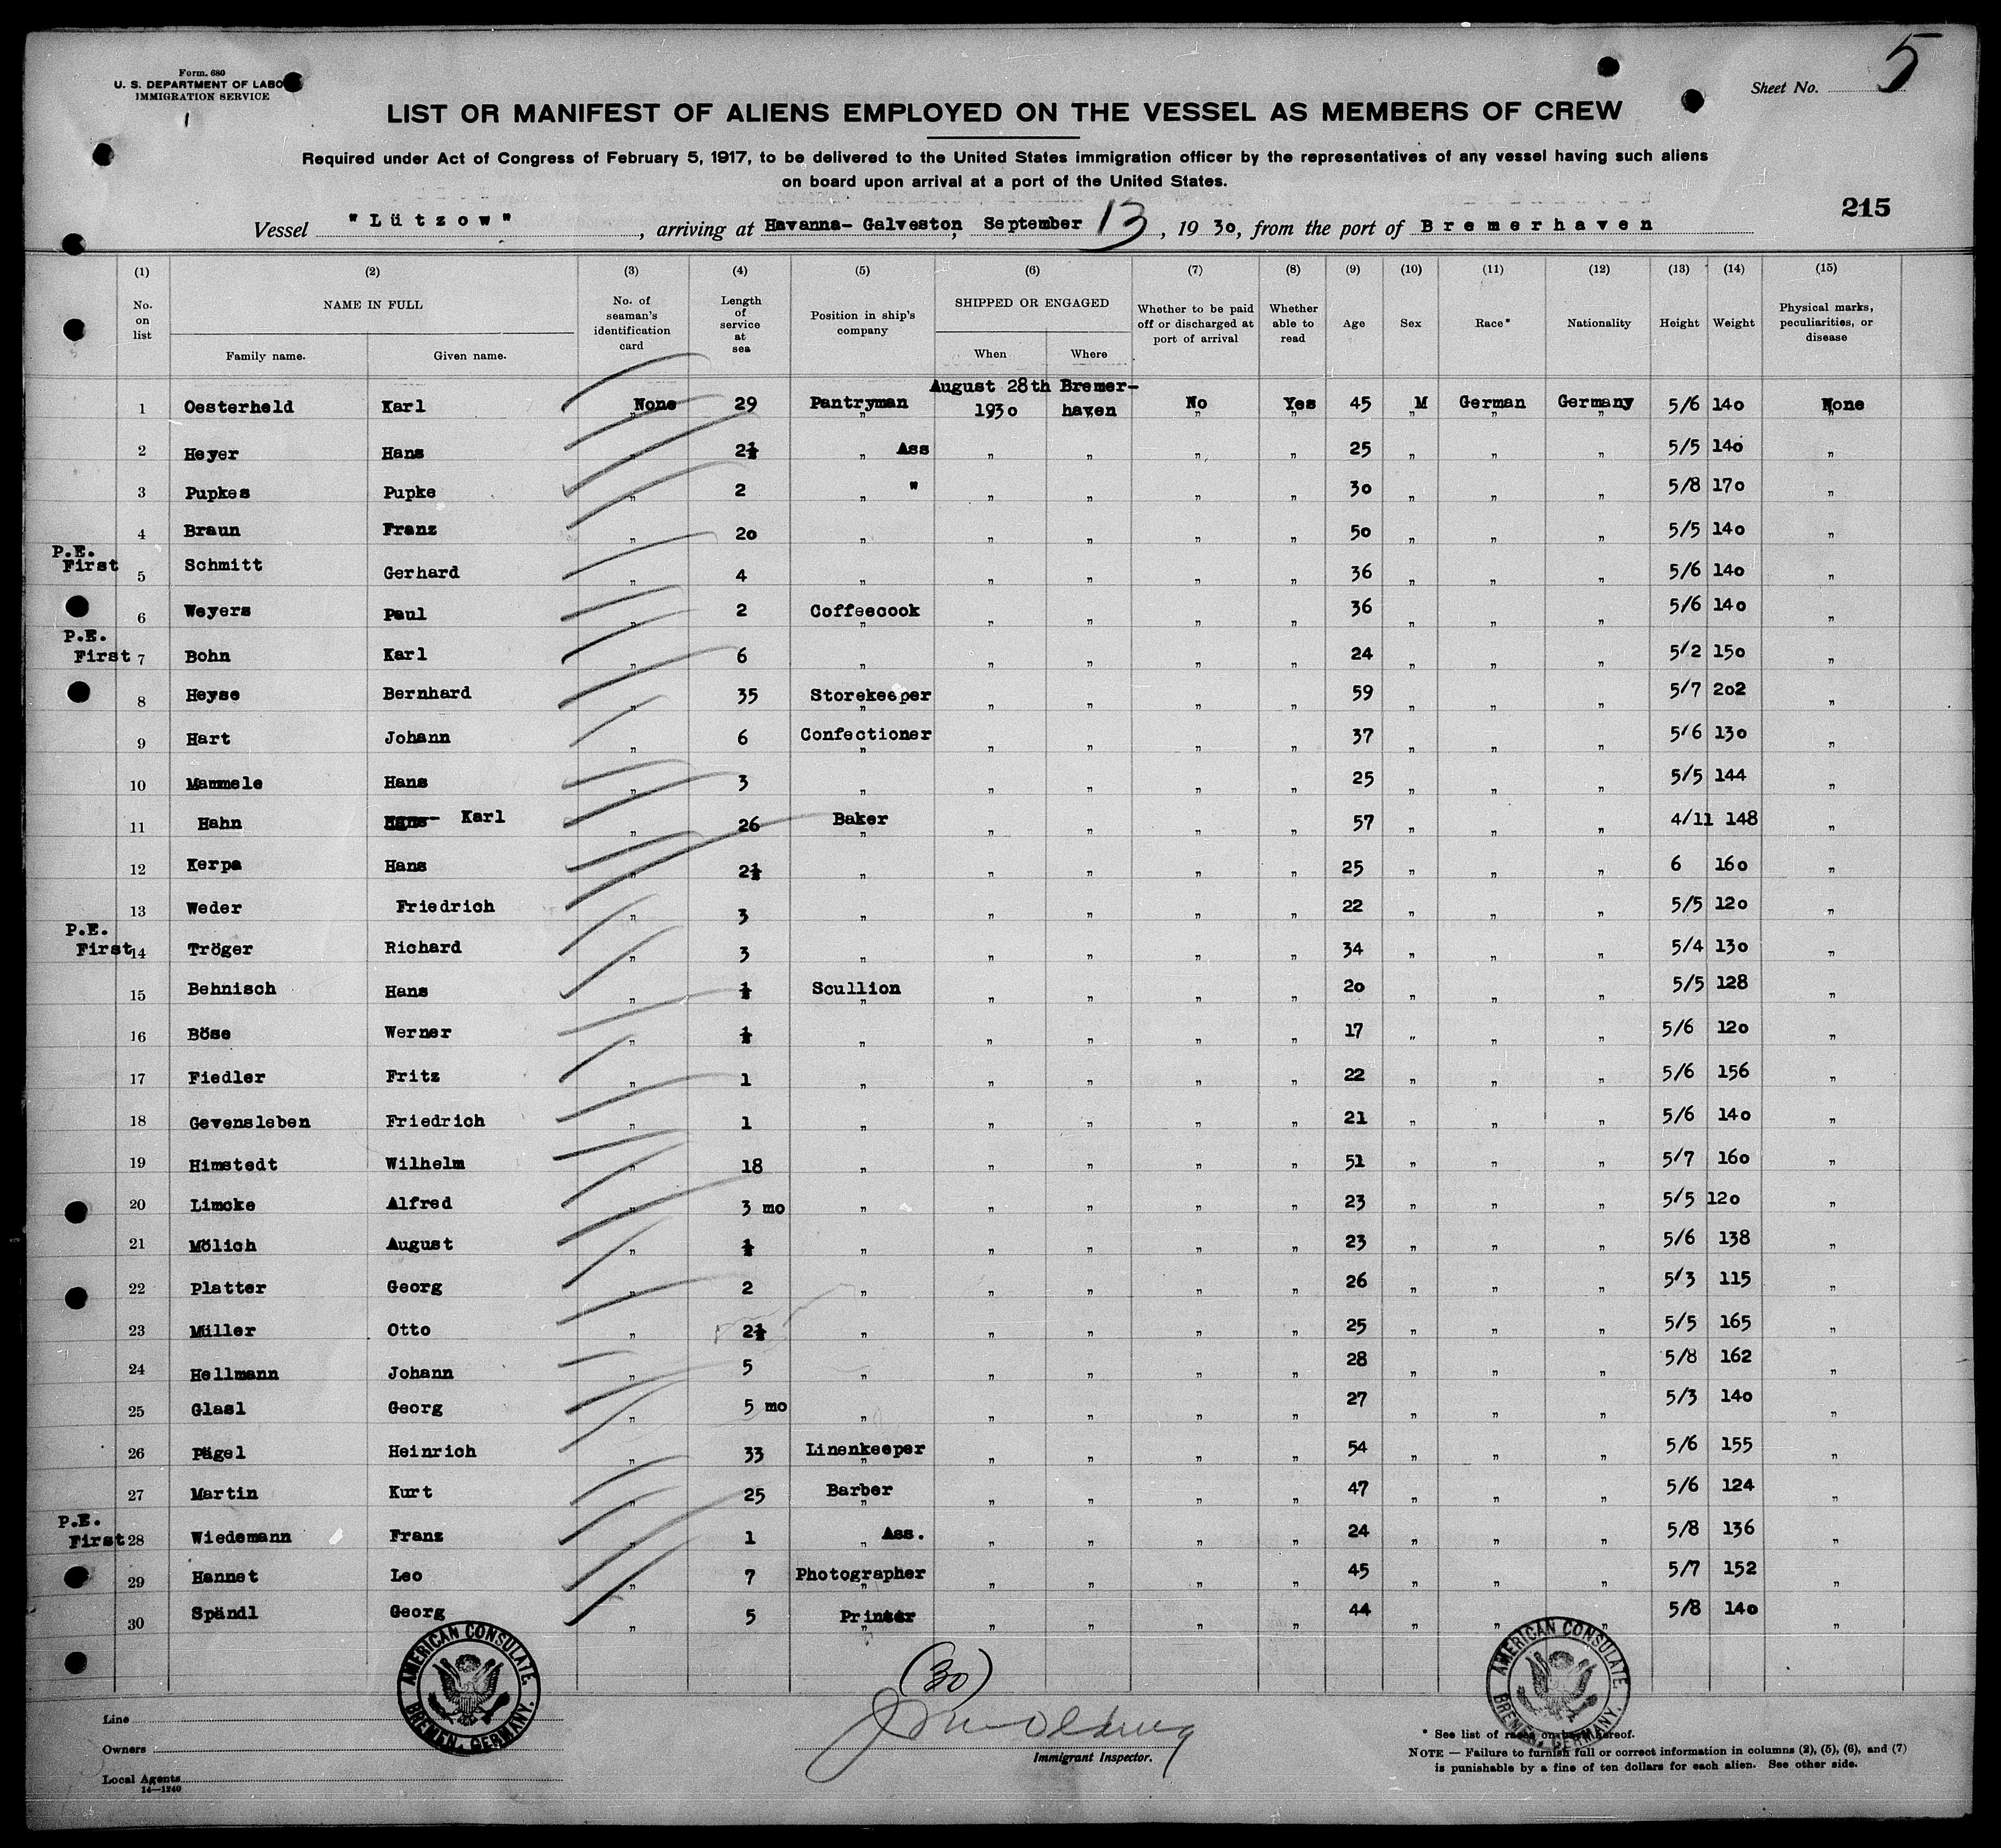 Form. 680
U. S. DEPARTMENT OF LABO
IMMIGRATION SERVICE
1
Sheet No. 5
LIST OR MANIFEST OF ALIENS EMPLOYED ON THE VESSEL AS MEMBERS OF CREW
Required under Act of Congress of February 5, 1917, to be delivered to the United States immigration officer by the representatives of any vessel having such aliens
on board upon arrival at a port of the United States.
215
Vessel "Lützow", arriving at Havanna-Galveston, September 13, 1930, from the port of Bremerhaven
(1) (2) (3) (4) (5) (6) (7) (8) (9) (10) (11) (12) (13) (14) (15)
No. on list NAME IN FULL Family name. Given name. No. of seaman's identification card Length of service at sea Position in ship's company SHIPPED OR ENGAGED When Where Whether to be paid off or discharged at port of arrival Whether able to read Age Sex Race* Nationality Height Weight Physical marks, peculiarities, or disease
1 Oesterheld Karl None 29 Pantryman August 28th 1930 Bremer-haven No Yes 45 M German Germany 5/6 140 None
2 Heyer Hans " 2½ " Ass " " " " 25 " " " 5/5 140 "
3 Pupkes Pupke " 2 " " " " " " 30 " " " 5/8 170 "
4 Braun Franz " 20 " " " " " 50 " " " 5/5 140 "
P.E. First 5 Schmitt Gerhard " 4 " " " " " 36 " " " 5/6 140 "
6 Weyers Paul " 2 Coffeecook " " " " 36 " " " 5/6 140 "
P.E. First 7 Bohn Karl " 6 " " " " " 24 " " " 5/2 150 "
8 Heyse Bernhard " 35 Storekeeper " " " " 59 " " " 5/7 202 "
9 Hart Johann " 6 Confectioner " " " " 37 " " " 5/6 130 "
10 Mammele Hans " 3 " " " " " 25 " " " 5/5 144 "
11 Hahn Hans Karl " 26 Baker " " " " 57 " " " 4/11 148 "
12 Kerpa Hans " 2½ " " " " " 25 " " " 6 160 "
13 Weder Friedrich " 3 " " " " " 22 " " " 5/5 120 "
P.E. First 14 Tröger Richard " 3 " " " " " 34 " " " 5/4 130 "
15 Behnisch Hans " ½ Scullion " " " " 20 " " " 5/5 128 "
16 Böse Werner " ½ " " " " " 17 " " " 5/6 120 "
17 Fiedler Fritz " 1 " " " " " 22 " " " 5/6 156 "
18 Gevensleben Friedrich " 1 " " " " " 21 " " " 5/6 140 "
19 Himstedt Wilhelm " 18 " " " " " 51 " " " 5/7 160 "
20 Limcke Alfred " 3 mo " " " " " 23 " " " 5/5 120 "
21 Mölich August " ½ " " " " " 23 " " " 5/6 138 "
22 Platter Georg " 2 " " " " " 26 " " " 5/3 115 "
23 Müller Otto " 2½ " " " " " 25 " " " 5/5 165 "
24 Hellmann Johann " 5 " " " " " 28 " " " 5/8 162 "
25 Glasl Georg " 5 mo " " " " " 27 " " " 5/3 140 "
26 Pägel Heinrich " 33 Linenkeeper " " " " 54 " " " 5/6 155 "
27 Martin Kurt " 25 Barber " " " " 47 " " " 5/6 124 "
P.E. First 28 Wiedemann Franz " 1 " Ass. " " " " 24 " " " 5/8 136 "
29 Hannet Leo " 7 Photographer " " " " 45 " " " 5/7 152 "
30 Spändl Georg " 5 Printer " " " " 44 " " " 5/8 140 "
AMERICAN CONSULATE. BREMEN, GERMANY.
AMERICAN CONSULATE BREMEN, GERMANY.
(30)
Line
Owners
Local Agents
14—1240
Immigrant Inspector.
* See list of races on back hereof.
NOTE — Failure to furnish full or correct information in columns (2), (5), (6), and (7)
is punishable by a fine of ten dollars for each alien. See other side.